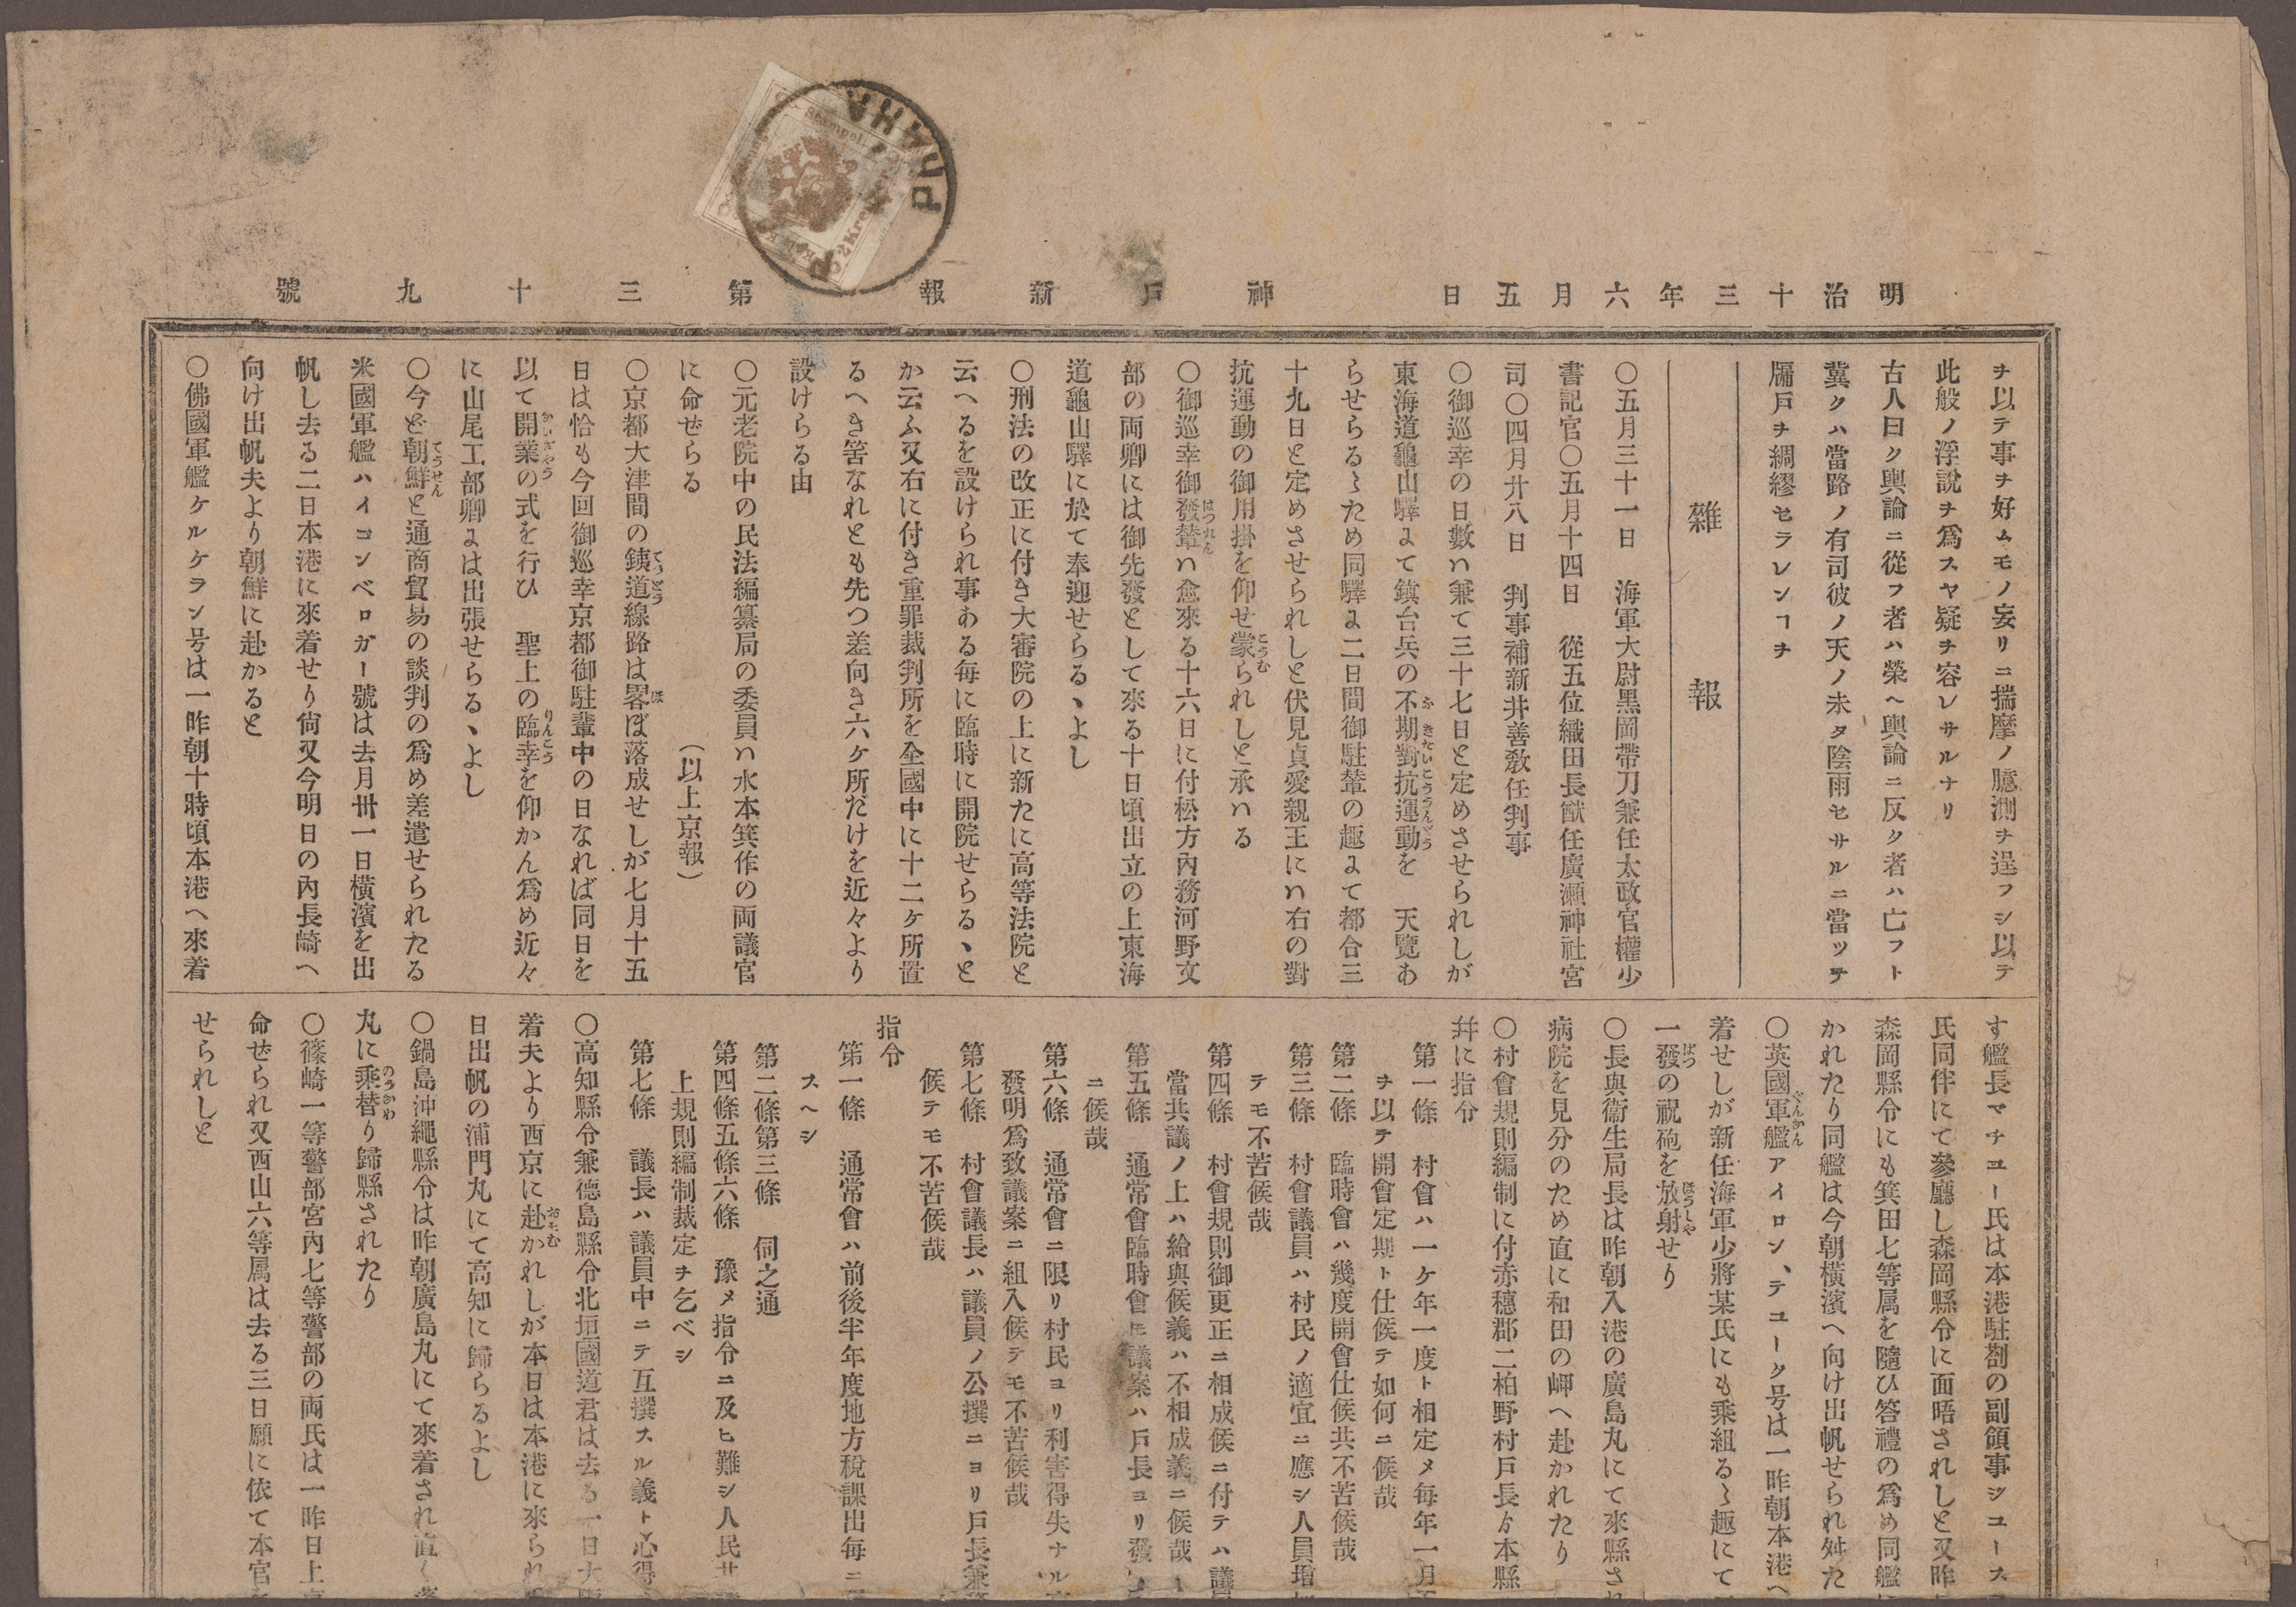 明治十三年六月五日 神戸新報 第三十九號
PRAHA
ヲ以テ事ヲ好ムモノ妄リニ揣摩ノ臆測ヲ逞フシ以テ
此般ノ浮說ヲ爲スヤ疑ヲ容レサルナリ
古人曰ク輿論ニ從フ者ハ榮ヘ輿論ニ反ク者ハ亡フト
冀クハ當路ノ有司彼ノ天ノ未タ陰雨セサルニ當ツテ
牖戸ヲ綢繆セラレンヿヲ
雜報
〇五月三十一日 海軍大尉黑岡帶刀兼任太政官權少
書記官〇五月十四日 從五位織田長猷任廣瀬神社宮
司〇四月廿八日 判事補新井善敎任判事
〇御巡幸の日數ハ兼て三十七日と定めさせられしが
東海道龜山驛よて鎮台兵の不期對抗運動を 天覽あ
らせらるゝため同驛よ二日間御駐輦の趣よて都合三
十九日と定めさせられしと伏見貞愛親王にハ右の對
抗運動の御用掛を仰せ蒙られしと承ハる
〇御巡幸御發輦ハ愈來る十六日に付松方內務河野文
部の両卿には御先發として來る十日頃出立の上東海
道龜山驛に於て奉迎せらるゝよし
〇刑法の改正に付き大審院の上に新たに高等法院と
云へるを設けられ事ある每に臨時に開院せらるゝと
か云ふ又右に付き重罪裁判所を全國中に十二ケ所置
るへき筈なれとも先つ差向き六ケ所だけを近々より
設けらる由
〇元老院中の民法編纂局の委員ハ水本箕作の両議官
に命ぜらる (以上京報)
〇京都大津間の銕道線路は畧ぼ落成せしが七月十五
日は恰も今回御巡幸京都御駐輦中の日なれば同日を
以て開業の式を行ひ 聖上の臨幸を仰かん爲め近々
に山尾工部卿よは出張せらるゝよし
〇今ど朝鮮と通商貿易の談判の爲め差遣せられたる
米國軍艦ハイコンベロガー號は去月卅一日橫濱を出
帆し去る二日本港に來着せり尙又今明日の內長崎へ
向け出帆夫より朝鮮に赴かると
〇佛國軍艦ケルケラン号は一昨朝十時頃本港へ來着
す艦長マチユー氏は本港駐剳の副領事ジユース
氏同伴にて參廳し森岡縣令に面晤されしと又昨
森岡縣令にも箕田七等属を隨ひ答禮の爲め同艦に
かれたり同艦は今朝橫濱へ向け出帆せられ舛た
〇英國軍艦アイロン、テユーク号は一昨朝本港へ
着せしが新任海軍少將某氏にも乘組るゝ趣にて
一發の祝砲を放射せり
〇長與衞生局長は昨朝入港の廣島丸にて來縣され
病院を見分のため直に和田の岬へ赴かれたり
〇村會規則編制に付赤穗郡二柏野村戸長ゟ本縣
幷に指令
第一條 村會ハ一ケ年一度ト相定メ每年一月
ヲ以テ開會定期ト仕候テ如何ニ候哉
第二條 臨時會ハ幾度開會仕候共不苦候哉
第三條 村會議員ハ村民ノ適宜ニ應シ人員增
テモ不苦候哉
第四條 村會規則御更正ニ相成候ニ付テハ議
當共議ノ上ハ給與候義ハ不相成義ニ候哉
第五條 通常會臨時會𪜈議案ハ戸長ヨリ發
ニ候哉
第六條 通常會ニ限リ村民ヨリ利害得失ナル
發明爲致議案ニ組入候テモ不苦候哉
第七條 村會議長ハ議員ノ公撰ニヨリ戸長兼
候テモ不苦候哉
指令
第一條 通常會ハ前後半年度地方稅課出每ニ
スヘシ
第二條第三條 伺之通
第四條五條六條 豫メ指令ニ及ヒ難シ人民
上規則編制裁定ヲ乞ベシ
第七條 議長ハ議員中ニテ互撰スル義ト心得
〇高知縣令兼德島縣令北垣國道君は去る一日大
着夫より西京に赴かれしが本日は本港に來られ
日出帆の浦門丸にて高知に歸らるよし
〇鍋島沖繩縣令は昨朝廣島丸にて來着され直く
丸に乘替り歸縣されたり
〇篠崎一等警部宮內七等警部の両氏は一昨日上
命ぜられ又西山六等属は去る三日願に依て本官
せられしと